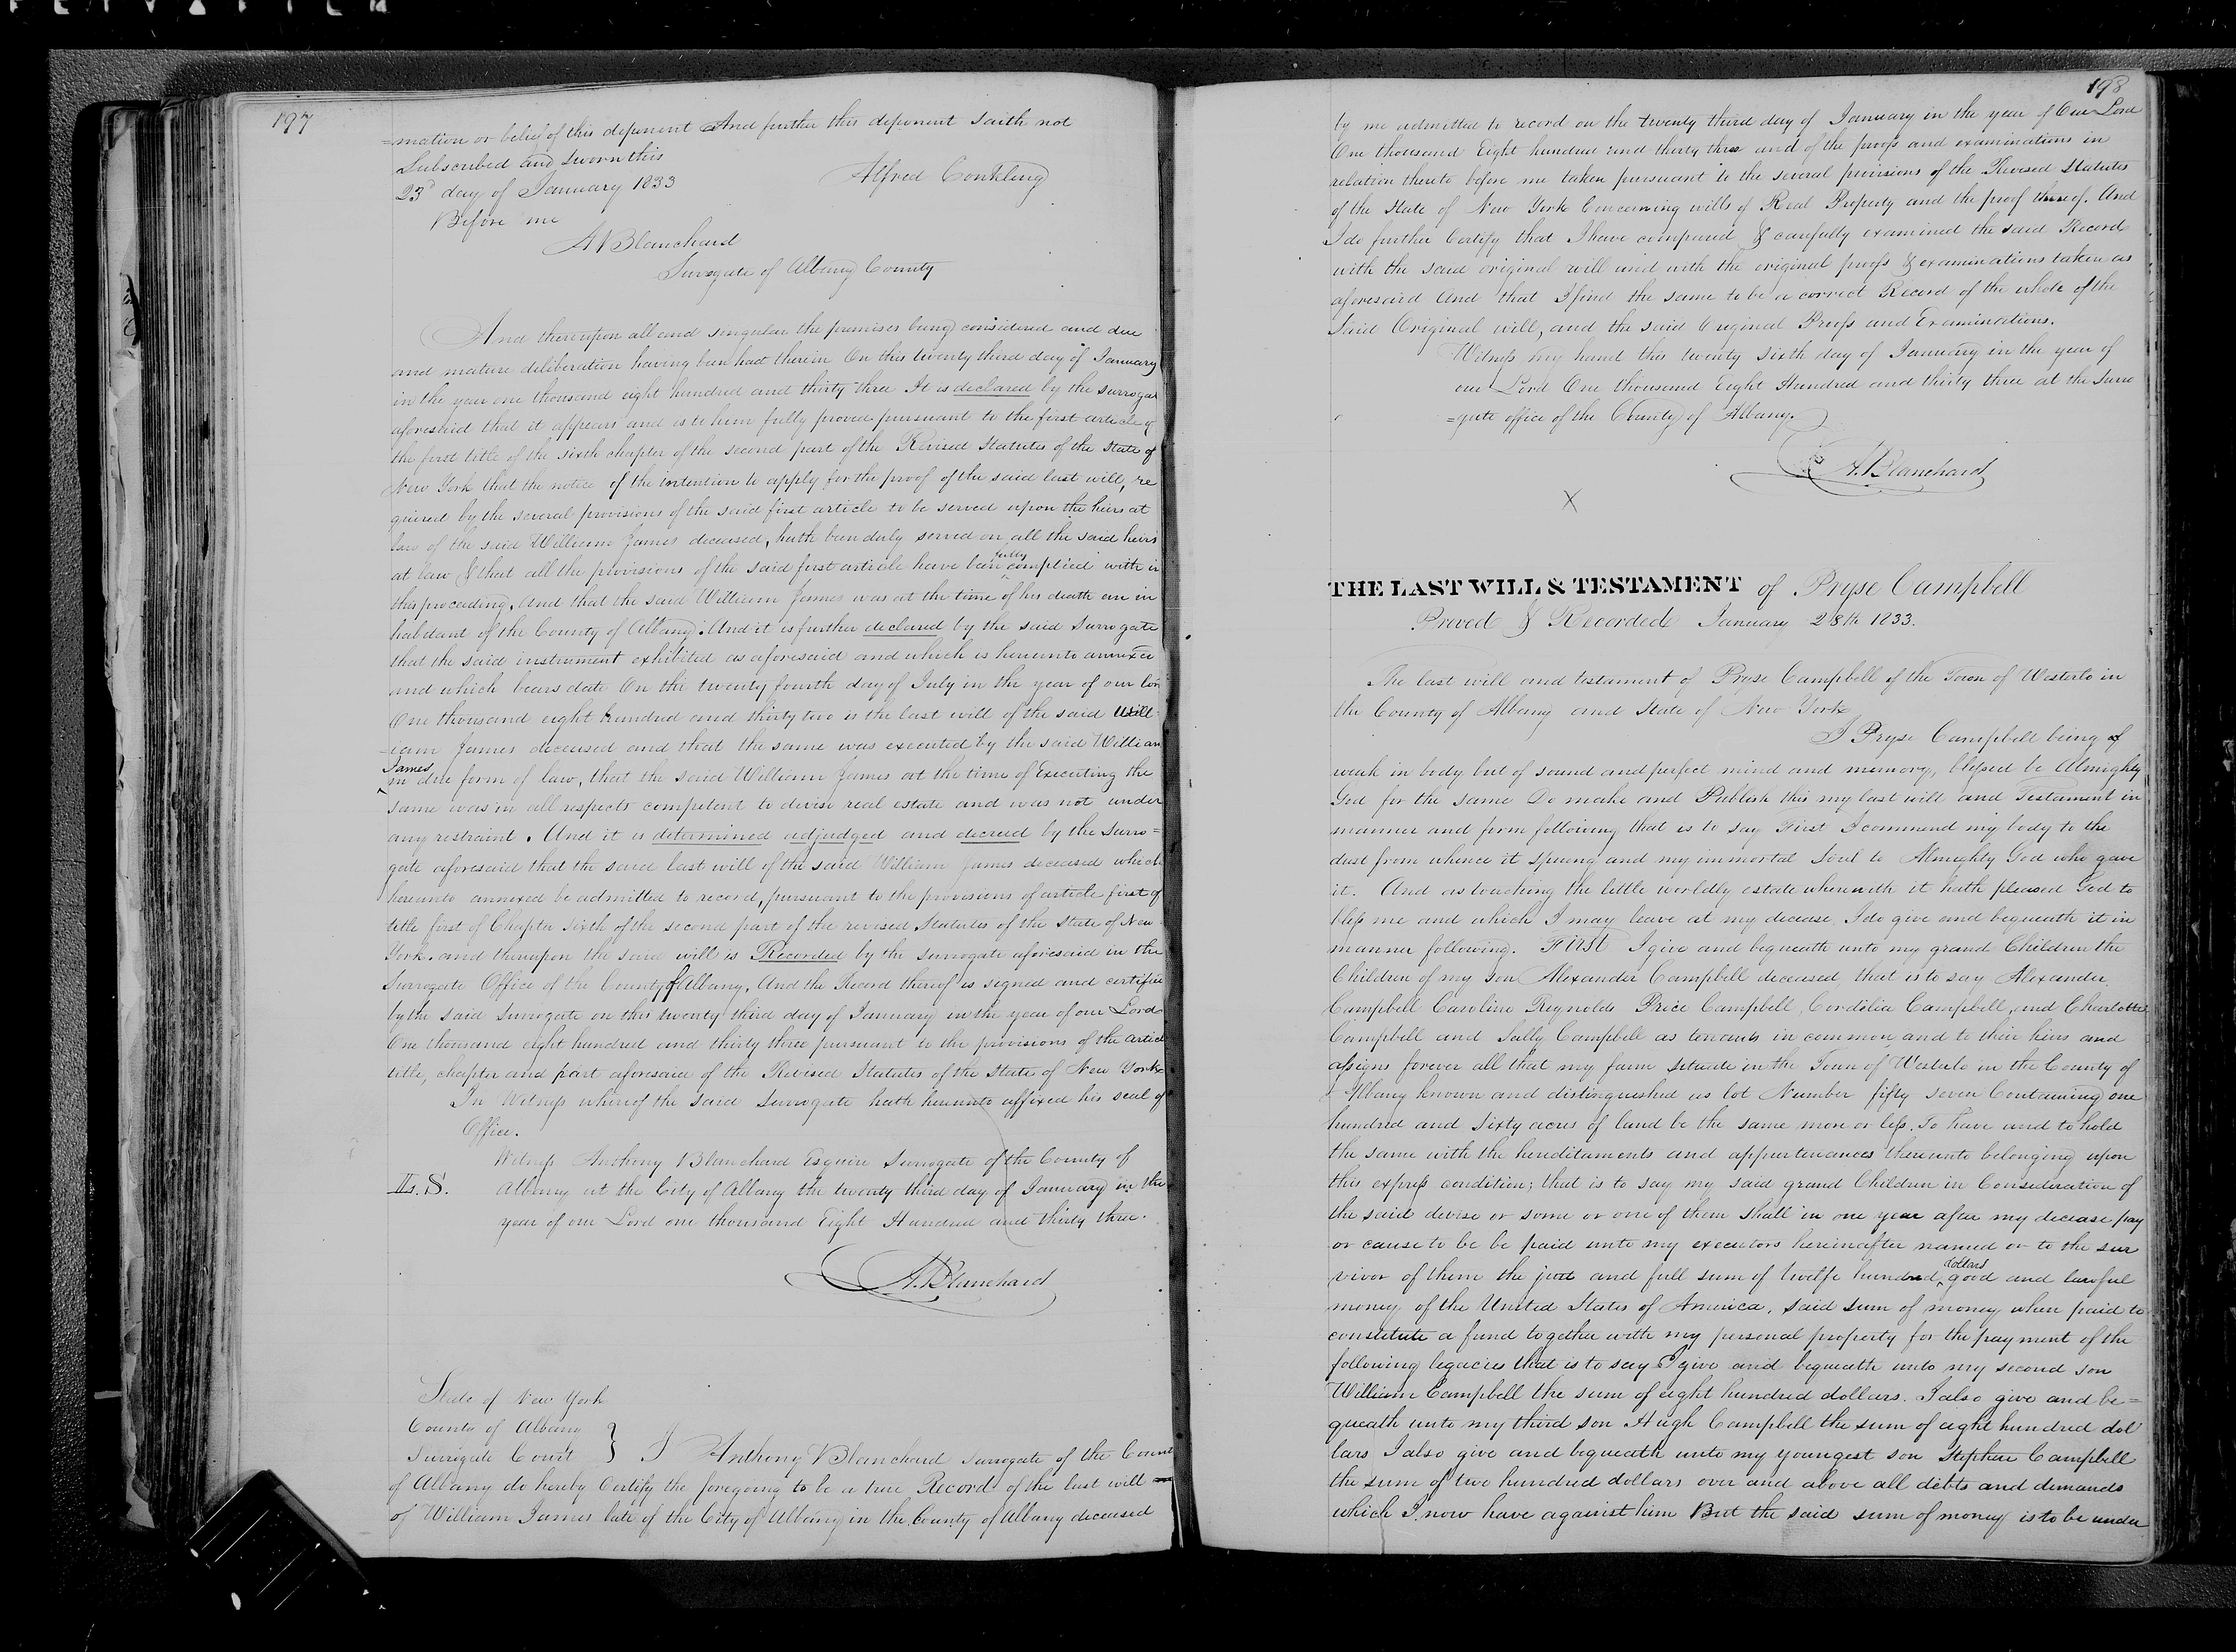 197
=mation or belief of this deponent And further this deponent saith not
Subscribed and sworn this
23d day of January 1833
Alfred Conkling
Before me
A Blanchard
Surrogate of Albany County
And thereupon all and singular the premises being considered and due
and mature deliberation having been had therein On this twenty third day of January
in the year one thousand eight hundred and thirty three It is declared by the surrogat
aforesaid that it appears and is to him fully proved pursuant to the first article of
the first title of the sixth chapter of the second part of the Revised Statutes of the State of
New York that the notice of the intention to apply for the proof of the said last will, re
quired by the several provisions of the said first article to be served upon the heirs at
law of the said William James deceased, hath been duly served on all the said heirs
at law & that all the provisions of the said first article have been fully complied with in
this proceeding. And that the said William James was at the time of his death an in
habitant of the County of Albany. And it is further declared by the said Surrogate
that the said instrument exhibited as aforesaid and which is hereunto annexed
and which bears date On the twenty fourth day of July in the year of our Lor
One thousand eight hundred and thirty two is the last will of the said Will
=iam James deceased and that the same was executed by the said William
James in due form of law, that the said William James at the time of Executing the
same was in all respects competent to devise real estate and was not under
any restraint. And it is determined adjudged and decreed by the Surro=
gate aforesaid that the said last will of the said William James deceased which
hereunto annexed be admitted to record, pursuant to the provisions of article first of
title first of Chapter Sixth of the second part of the revised Statutes of the State of New
York. and thereupon the said will is Recorded by the surrogate aforesaid in the
Surrogate Office of the County of Albany. And the Record thereof is signed and certifie
by the said Surrogate on this twenty third day of January in the year of our Lord
One thousand eight hundred and thirty three pursuant to the provisions of the articl
title, chapter and part aforesaid of the Revised Statutes of the State of New York
In Witness whereof the said Surrogate hath hereunto affixed his seal of
Office.
Witness Anthony Blanchard Esquire Surrogate of the County of
L. S. Albany at the City of Albany the twenty third day of January in the
year of our Lord one thousand Eight Hundred and thirty three.
A. Blanchard
State of New York
County of Albany
Surrogate Court } I Anthony Blanchard Surrogate of the Count
of Albany do hereby Certify the foregoing to be a true Record of the last will
of William James late of the City of Albany in the County of Albany deceased
198
by me admitted to record on the twenty third day of January in the year of Our Lord
One thousand Eight hundred and thirty three and of the proofs and examinations in
relation thereto before me taken pursuant to the several provisions of the Revised Statutes
of the State of New York Concerning wills of Real Property and the proof thereof. And
I do further Certify that I have compared & carefully examined the said Record
with the said original will and with the original proofs & examinations taken as
aforesaid And that I find the same to be a correct Record of the whole of the
Said Original will, and the said Original Proofs and Examinations.
Witness my hand this twenty Sixth day of January in the year of
our Lord One thousand Eight Hundred and thirty three at the Surro
=gate office of the County of Albany.
A. Blanchard
X
THE LAST WILL & TESTAMENT of Pryse Campbell
Proved & Recorded January 28th 1833.
The last will and testament of Pryse Campbell of the Town of Westerlo in
the County of Albany and State of New York
I Pryse Campbell being of
weak in body but of sound and perfect mind and memory, blessed be Almighty
God for the same Do make and Publish this my last will and Testament in
manner and form following that is to say First I commend my body to the
dust from whence it sprung and my immortal Soul to Almighty God who gave
it. And as touching the little worldly estate wherewith it hath pleased God to
bless me and which I may leave at my decease, I do give and bequeath it in
manner following. First I give and bequeath unto my grand Children the
Children of my son Alexander Campbell deceased, that is to say Alexander
Campbell Caroline Reynolds Price Campbell, Cordelia Campbell, and Charlotte
Campbell and Sally Campbell as tenants in common and to their heirs and
assigns forever all that my farm situate in the Town of Westerlo in the County of
Albany known and distinguished as lot Number fifty seven Containing one
hundred and Sixty acres of land be the same more or less. To have and to hold
the same with the hereditaments and appurtenances thereunto belonging upon
this express condition; that is to say my said grand Children in Consideration of
the said devise or some or one of them shall in one year after my decease pay
or cause to be be paid unto my executors hereinafter named or to the sur
vivor of them the just and full sum of twelfe hundred dollars good and lawful
money of the United States of America, said sum of money when paid to
constitute a fund together with my personal property for the payment of the
following legacies that is to say I give and bequeath unto my second son
William Campbell the sum of eight hundred dollars. I also give and be=
queath unto my third son Hugh Campbell the sum of eight hundred dol
lars I also give and bequeath unto my youngest son Stephen Campbell
the sum of two hundred dollars over and above all debts and demands
which I now have against him But the said sum of money is to be under